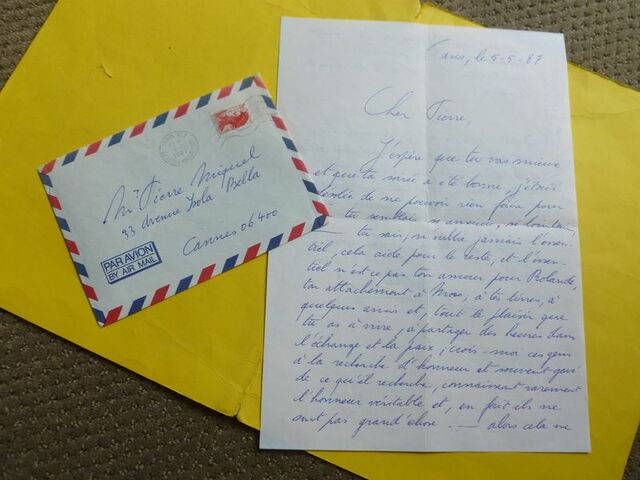 Mr Pierre Miquel
93 Avenue Isola Bella
Cannes 06400
PAR AVION
BY AIR MAIL
Paris, le 5-5-87
Cher Pierre,
J'espère que tu vas mieux
et que ta soirée a été bonne, j'étais
désolée de ne pouvoir rien faire pour
tu semblais si anxieux, si lointain,
tu sais, n'oublie jamais l'essen-
tiel, cela aide pour le reste, et l'essen-
tiel n'est ce pas ton amour pour Rolande,
ton attachement à à tes livres, à
quelques amis et, tout le plaisir que
tu as à vivre, à partager des heures dans
l'échange et la paix; crois-moi ces gens
à la recherche d'honneur et souvent
de ce qu'il recherche, connaissent rarement
l'honneur véritable et, en fait ils ne
sont pas grand'chose. — alors cela ne